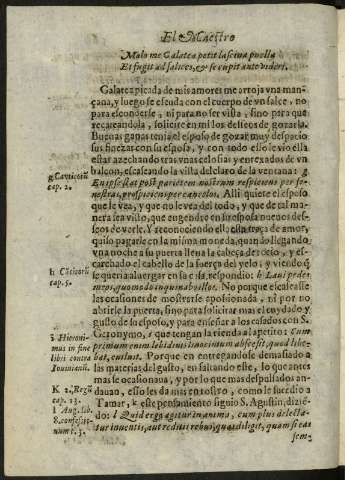 El Maestro
Malo me Galatea petit lasciua puella
Et fugit ad salices, & se cupit ante videri.
Galatea picada de mis amores me arroja vna man-
çana, y luego se escuda con el cuerpo de vn salce, no
para esconderse, ni para no ser vista, sino para que
recareandola, solicite en mi los desseos de gozarla.
Buenas ganas tenia el esposo de gozar muy despacio
sus finezas con su esposa, y con todo esso le vio ella
estar azechando tras vnas celosias y enrexados de vn
balcon, escaseando la vista del claro de la ventana: g
g Canticorũ
cap. 2.
En ipse stat post parietem nostrum respiciens per fe-
nestras, prospiciens per cancelos. Alli quiere el esposo
que le vea, y que no le vea del todo, y que de tal ma-
nera sea visto, que engendre en su esposa nueuos des-
seos de verle. Y reconociendo ella esta traça de amor,
quiso pagarle en la misma moneda, quando llegando
vna noche a su puerta llena la cabeça de rocio, y es-
carchado el cabello de la fuerça del yelo, y viendo q̃
se queria aluergar en su casa, respondio: h Laui pedes
h Cãticorũ
cap. 5.
meos, quomodo inquinabo illos. No porque escasease
las ocasiones de mostrarse aposionada, ni por no
abrirle la puerta, sino para solicitar mas el enydado y
gusto de su esposo, y para enseñar a los casados con S.
Geronymo, i que tengan la rienda al apetito: cum
i Hieroni-
mus in fine
libri contra
Iouinianũ.
primum enim libidinis limorinium absecsit, quod lihe-
bat, euilsunt. Porque en entregandose demasiado a
las materias del gusto, en faltando este, lo que antes
mas se ocasionaua, y por lo que mas despulsados an-
dauan, esso les da mas en rostro, como le sucedio a
K 2. Regũ
cap. 13.
Tamar, k este pensamiento siguio S. Agustin, dizié-
l Aug. lib.
8. confessio-
num c. 3.
do: l Quid ergo agitur in anima, cum plus delecta-
tur inuentis, aut reditis rebus, quas diligit, quam si eas
sem-